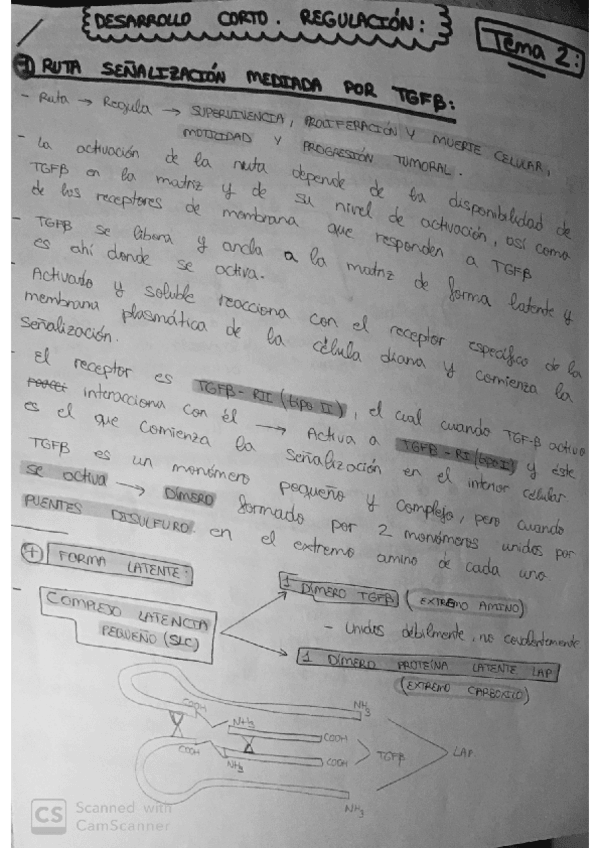 DESARROLLO CORTO. REGULACIÓN:
Tema 2:
① RUTA SEÑALIZACIÓN MEDIADA POR TGFβ:
- Ruta → Regula → SUPERVIVENCIA, PROLIFERACIÓN Y MUERTE CELULAR,
MOTILIDAD Y PROGRESIÓN TUMORAL.
- La activación de la ruta depende de la disponibilidad de
TGFβ en la matriz y de su nivel de activación, así como
de los receptores de membrana que responden a TGFβ
- TGFβ se libera y ancla a la matriz de forma latente y
es ahí donde se activa.
- Activado y soluble reacciona con el receptor específico de la
membrana plasmática de la célula diana y comienza la
señalización.
- El receptor es TGFβ-RII (tipo II), el cual cuando TGF-β activo
interacciona con él → Activa a TGFβ-RI (tipo I) y éste
es el que comienza la señalización en el interior celular
TGFβ es un monómero pequeño y complejo, pero cuando
se activa → DÍMERO formado por 2 monómeros unidos por
PUENTES DISULFURO en el extremo amino de cada uno
+ FORMA LATENTE:
- COMPLEJO LATENCIA
PEQUEÑO (SLC)
1 DÍMERO TGFβ (EXTREMO AMINO)
- Unidos débilmente, no covalentemente
1 DÍMERO PROTEÍNA LATENTE LAP
(EXTREMO CARBOXILO)
COOH
NH3
NH3
COOH
COOH
COOH
NH3
NH3
TGFβ
LAP
CS Scanned with
CamScanner